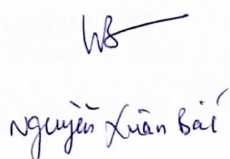 Nguyễn Xuân Bái